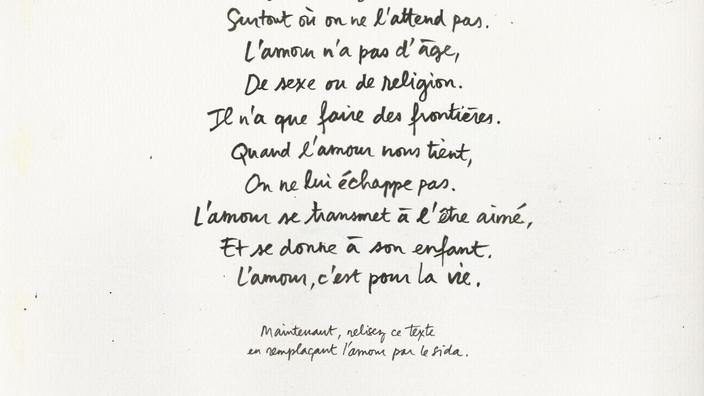 Surtout où on ne l'attend pas.
L'amour n'a pas d'âge,
De sexe ou de religion.
Il n'a que faire des frontières.
Quand l'amour nous tient,
On ne lui échappe pas.
L'amour se transmet à l'être aimé,
Et se donne à son enfant.
L'amour, c'est pour la vie.
Maintenant, relisez ce texte
en remplaçant l'amour par le sida.